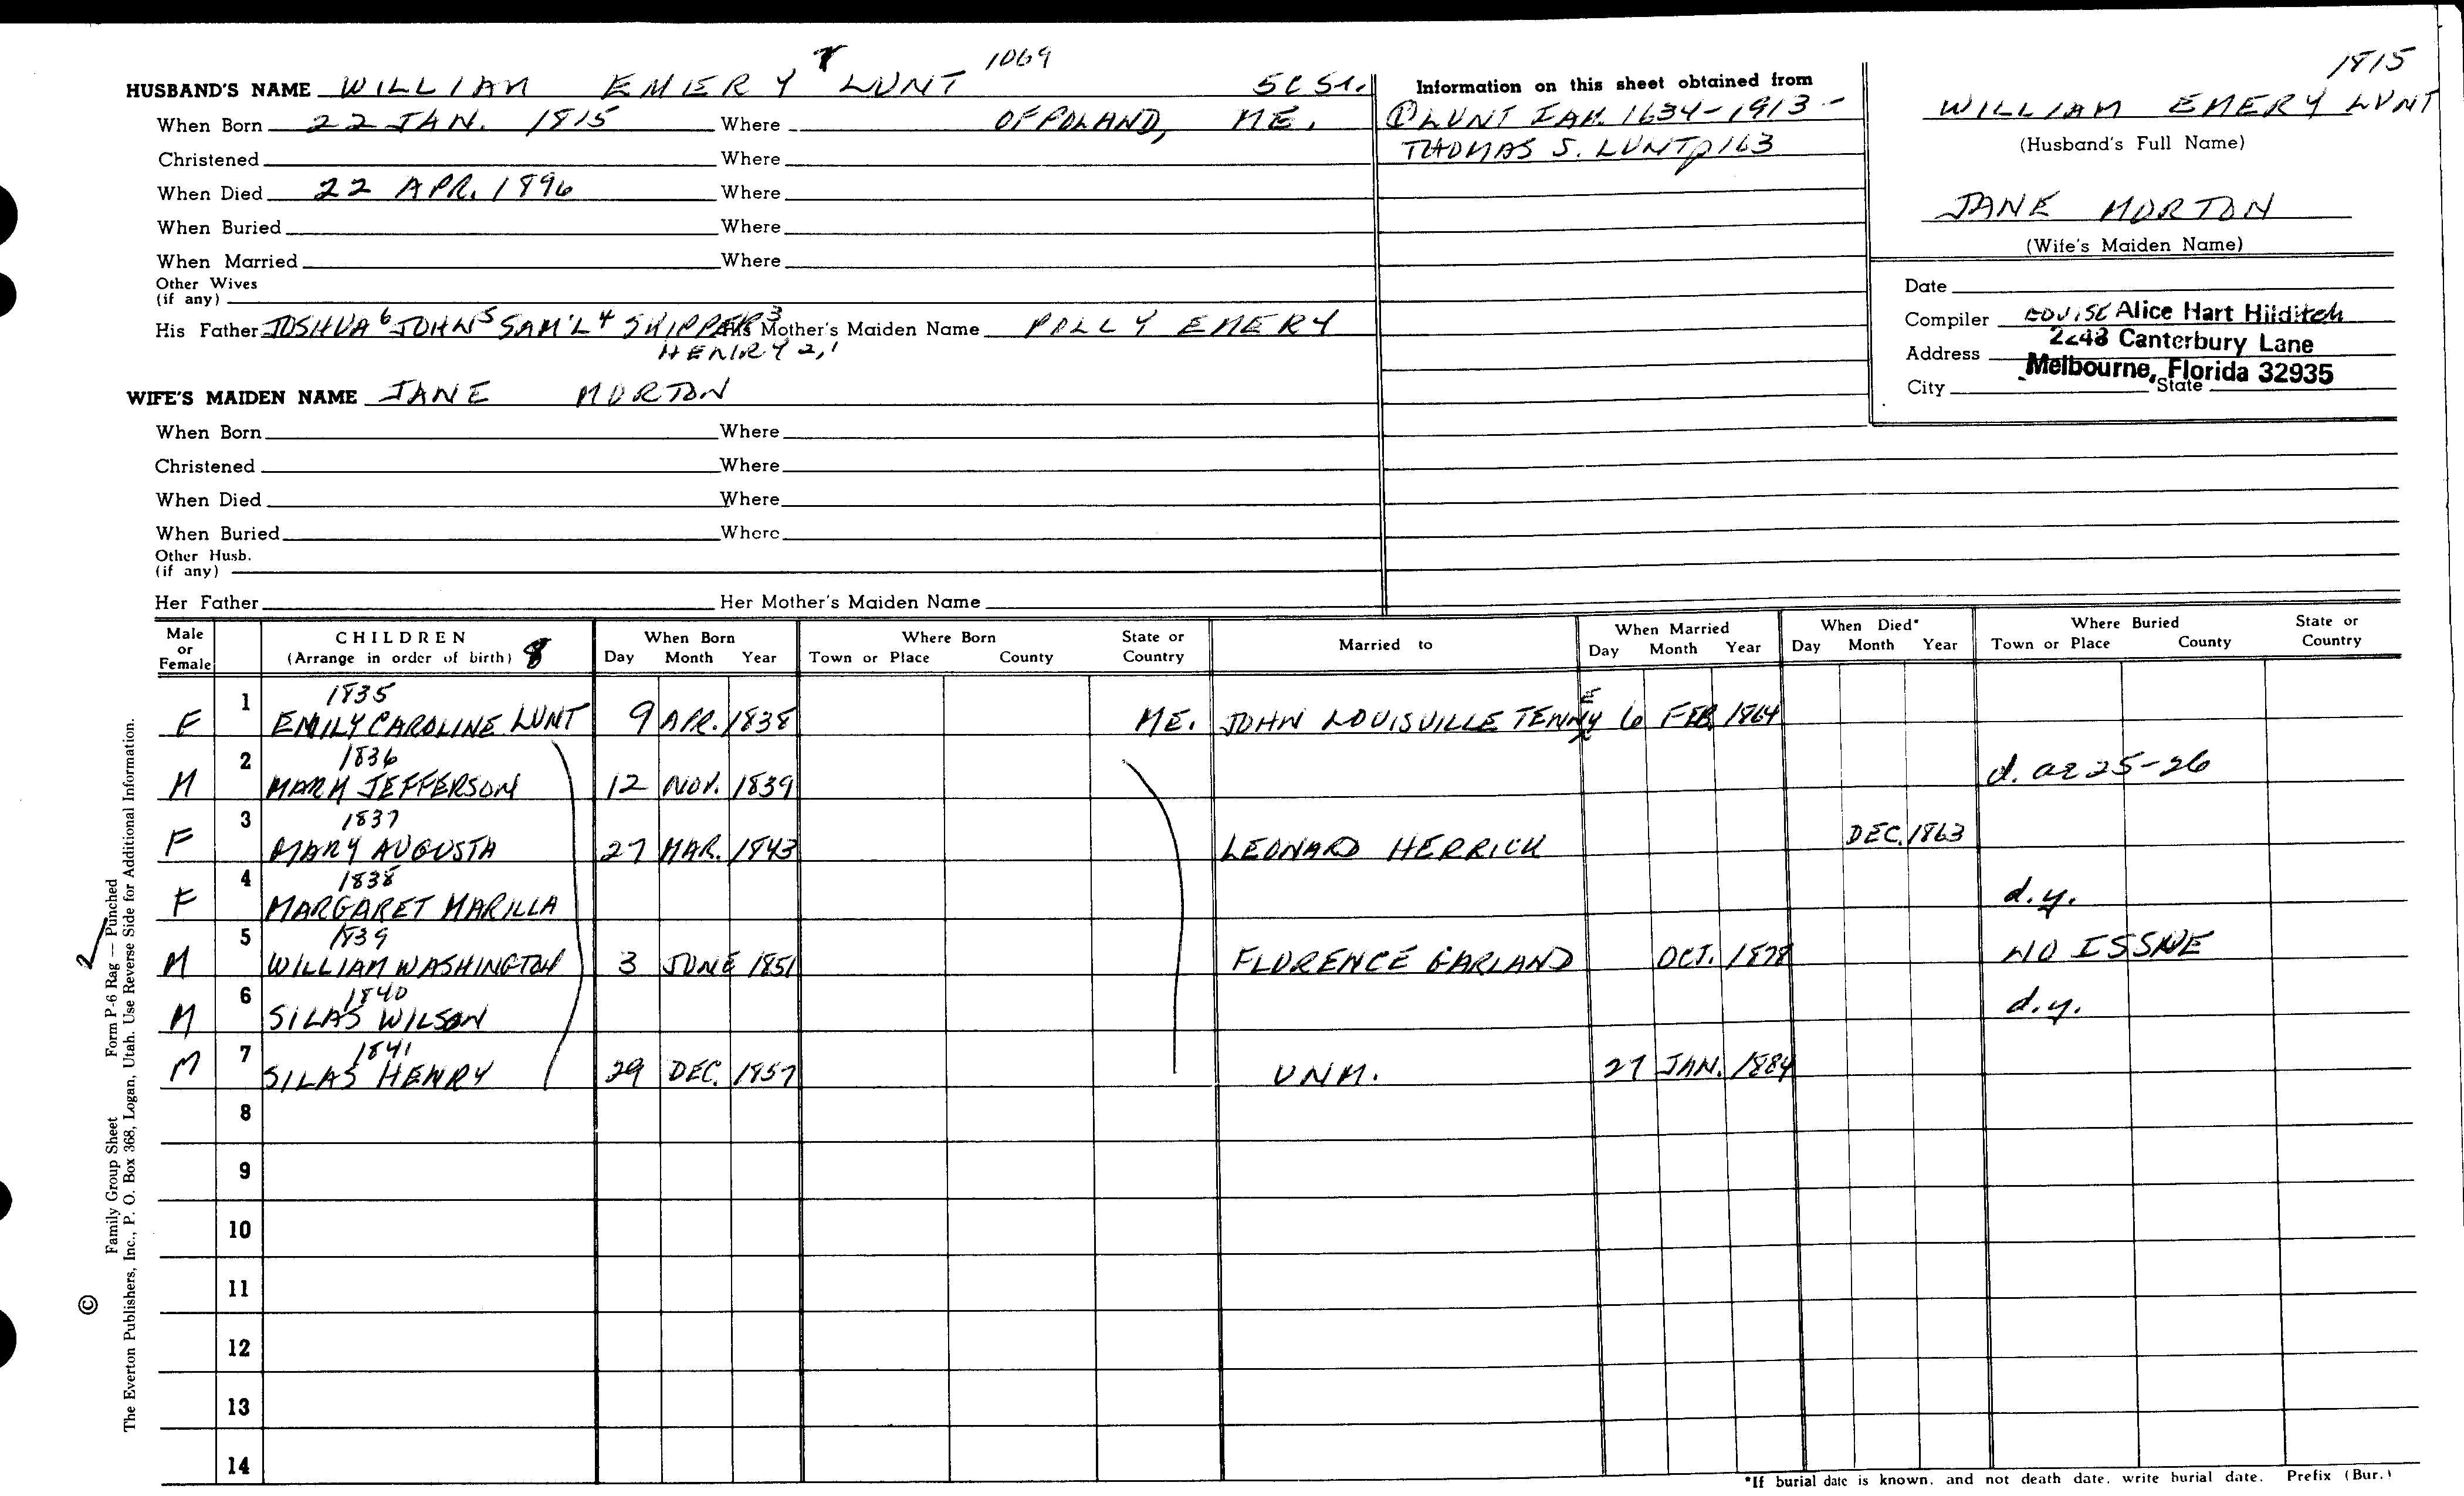 1069
1815
HUSBAND'S NAME WILLIAM EMERY 7 LUNT
Information on this sheet obtained from
When Born 22 JAN. 1815 Where OF POLAND, ME.
① LUNT FAM. 1634-1913-
THOMAS S. LUNT p 163
WILLIAM EMERY LUNT
(Husband's Full Name)
Christened Where
When Died 22 APR. 1896 Where
JANE MORTON
(Wife's Maiden Name)
When Buried Where
When Married Where
Other Wives
(if any)
His Father JOSHUA 6 JOHN 5 SAM'L 4 SKIPPER 3 His Mother's Maiden Name POLLY EMERY
HENRY 2,1
Date
Compiler LOUISE Alice Hart Hilditch
2248 Canterbury Lane
Address
Melbourne, Florida 32935
City State
WIFE'S MAIDEN NAME JANE MORTON
When Born Where
Christened Where
When Died Where
When Buried Where
Other Husb.
(if any)
Her Father Her Mother's Maiden Name
Male or Female
CHILDREN
(Arrange in order of birth) 8
When Born
Day Month Year
Where Born
Town or Place County
State or Country
Married to
When Married
Day Month Year
When Died*
Day Month Year
Where Buried
Town or Place County
State or Country
1835
F 1 EMILY CAROLINE LUNT 9 APR. 1838 ME. JOHN LOUISVILLE TENNEY 6 FEB. 1864
1836
M 2 MARK JEFFERSON 12 NOV. 1839 d. ae 25-26
1837
F 3 MARY AUGUSTA 27 MAR. 1843 LEONARD HERRICK DEC. 1863
1838
F 4 MARGARET MARILLA d.y.
1839
M 5 WILLIAM WASHINGTON 3 JUNE 1851 FLORENCE GARLAND OCT. 1878 NO ISSUE
1840
M 6 SILAS WILSON d.y.
1841
M 7 SILAS HENRY 29 DEC. 1857 UNM. 27 JAN. 1884
8
9
10
11
12
13
14
*If burial date is known, and not death date, write burial date. Prefix (Bur.)
2
© Family Group Sheet Form P-6 Rag — Punched
The Everton Publishers, Inc., P. O. Box 368, Logan, Utah. Use Reverse Side for Additional Information.